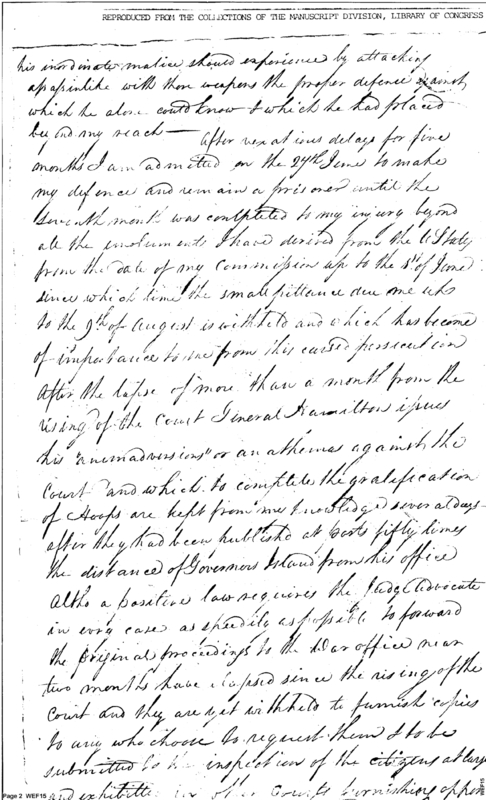 REPRODUCED FROM THE COLLECTIONS OF THE MANUSCRIPT DIVISION, LIBRARY OF CONGRESS
his inordinate malice should experience by attacking
assassinlike with those weapons the proper defence against
which he alone could know & which he had placed
beyond my reach — After vexatious delays for five
months I am admitted on the 27th June to make
my defence and remain a prisoner until the
seventh month was completed to my injury beyond
all the emoluments I have derived from the U States
from the date of my Commission up to the 1st of June
since which time the small pittance due me up
to the 9th of August is withheld and which has become
of importance to me from this cursed persecution
After the lapse of more than a month from the
rising of the Court General Hamilton issues
his "animadversions" or anathemas against the
Court and which to complete the gratification
of Hoops are kept from my knowledge several days
after they had been published at posts fifty times
the distance of Governors Island from his office
Altho a positive law requires the Judge Advocate
in every case as speedily as possible to forward
the original proceedings to the War office near
two months have elapsed since the rising of the
Court and they are yet withheld to furnish copies
to any who choose to request them & to be
submitted to the inspection of the citizens at large
and exhibited in the Courts furnishing
Page 2 WEF15
WEF15